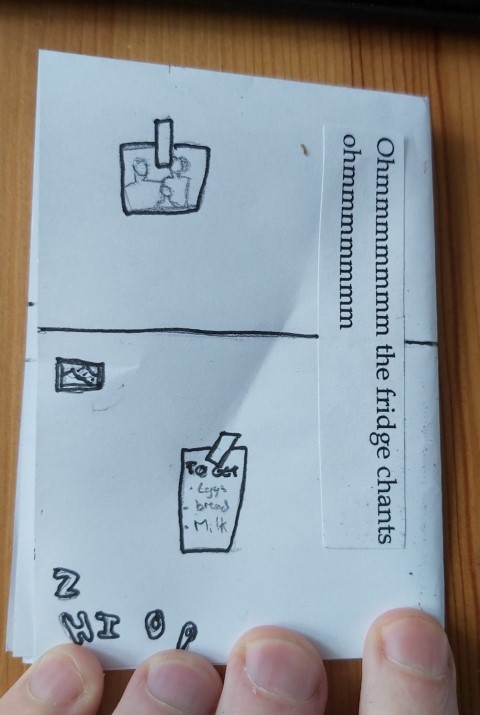 Ohmmmmmmmm the fridge chants
ohmmmmmmmm
TO GET
· Eggs
· bread
· Milk
Z
HI O